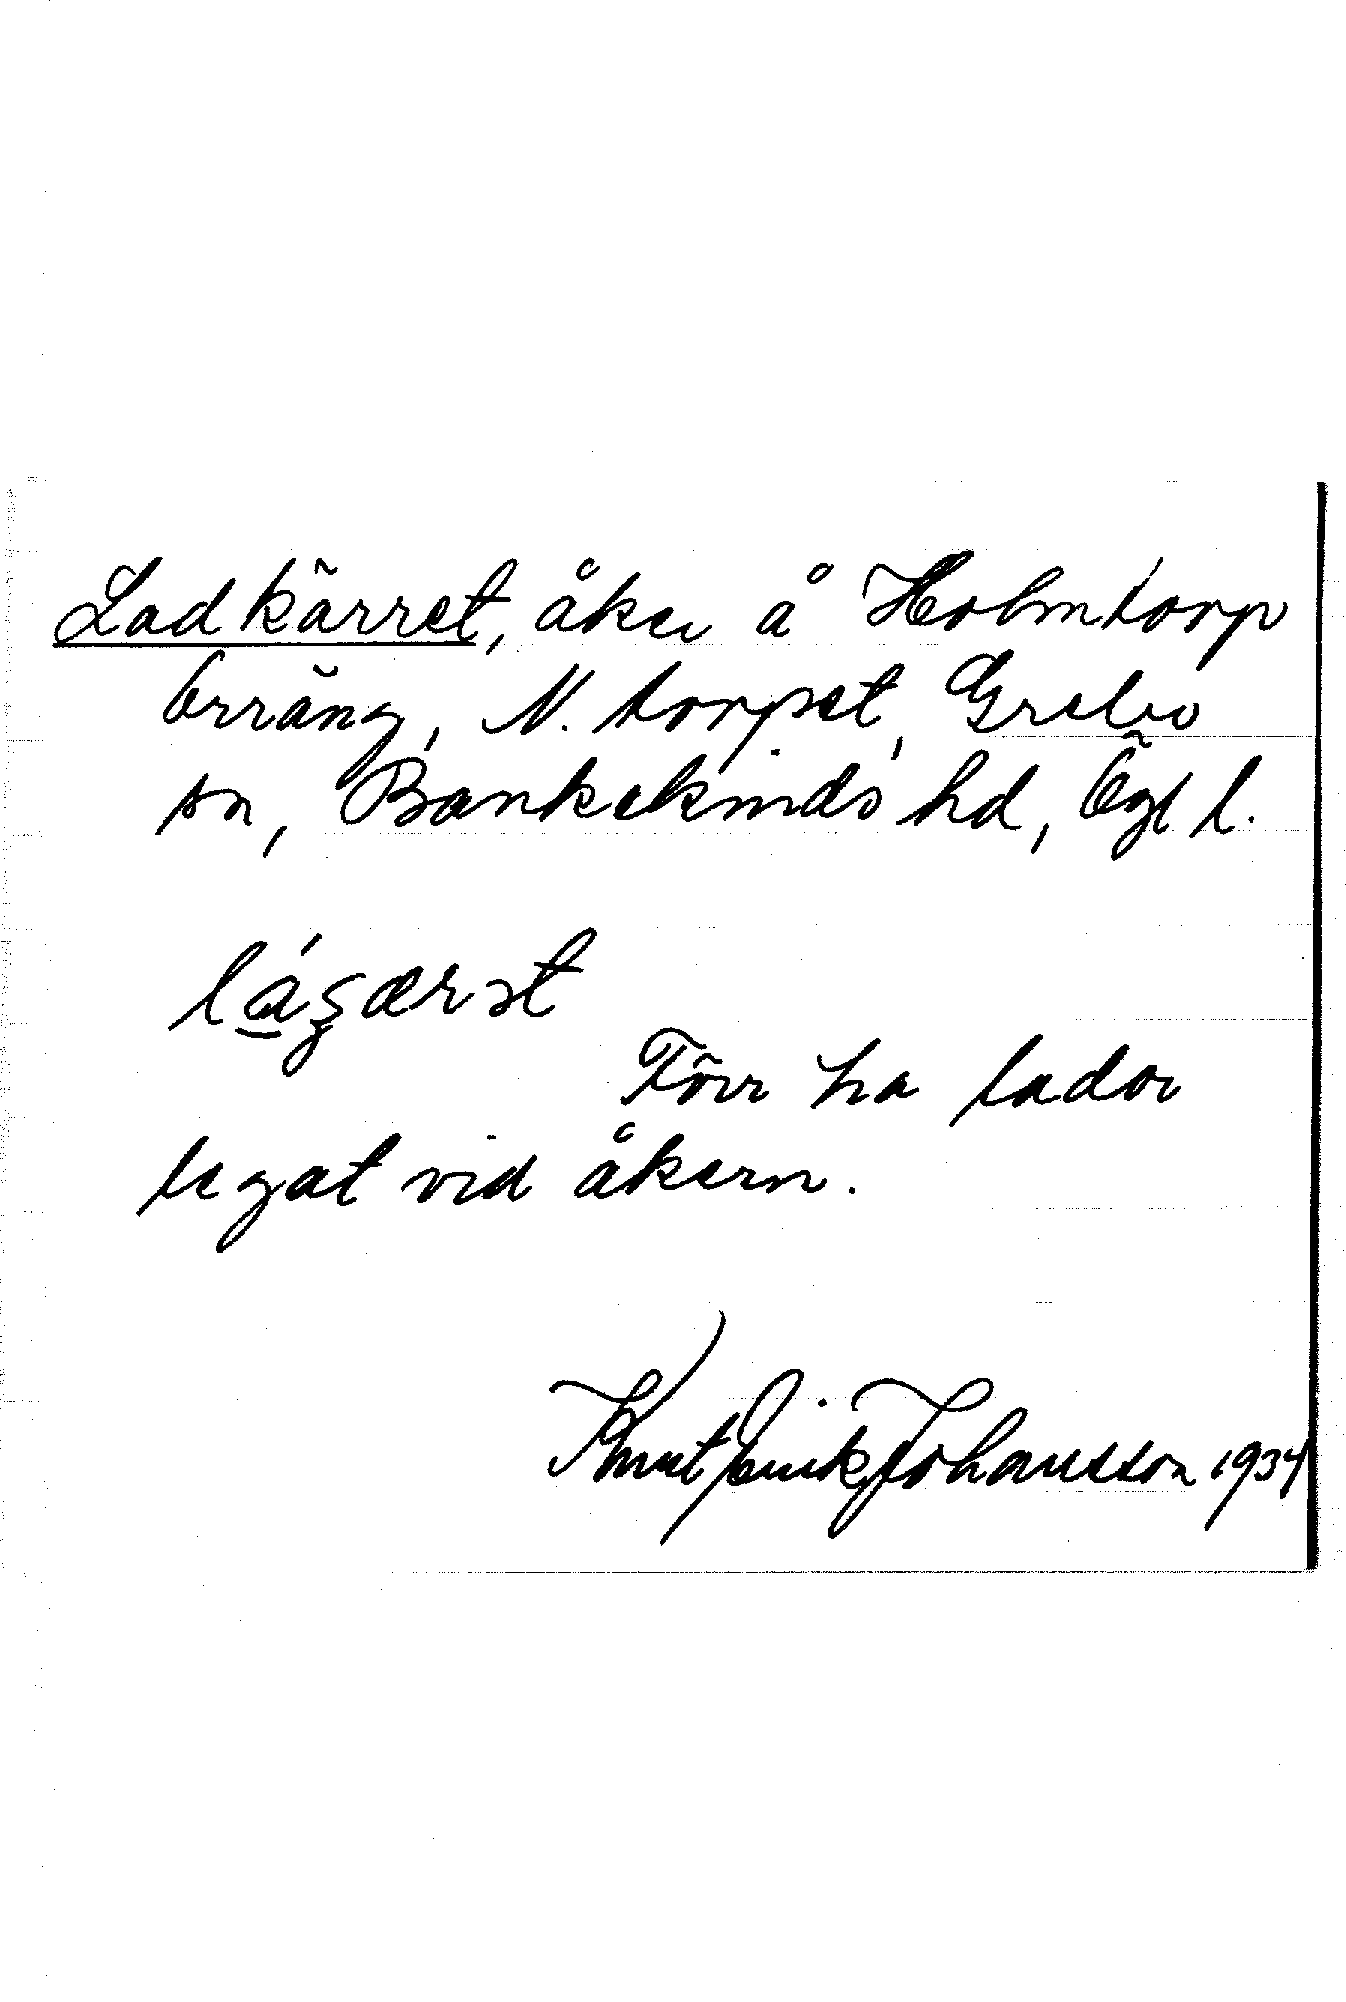 Ladkärret, åker å Holmtorp
Örräng, N. torpet, Grebo
sn, Bankekinds hd, Ögl l.
lágærət
Förr ha lador
legat vid åkern.
Knut Erik Johansson 1934